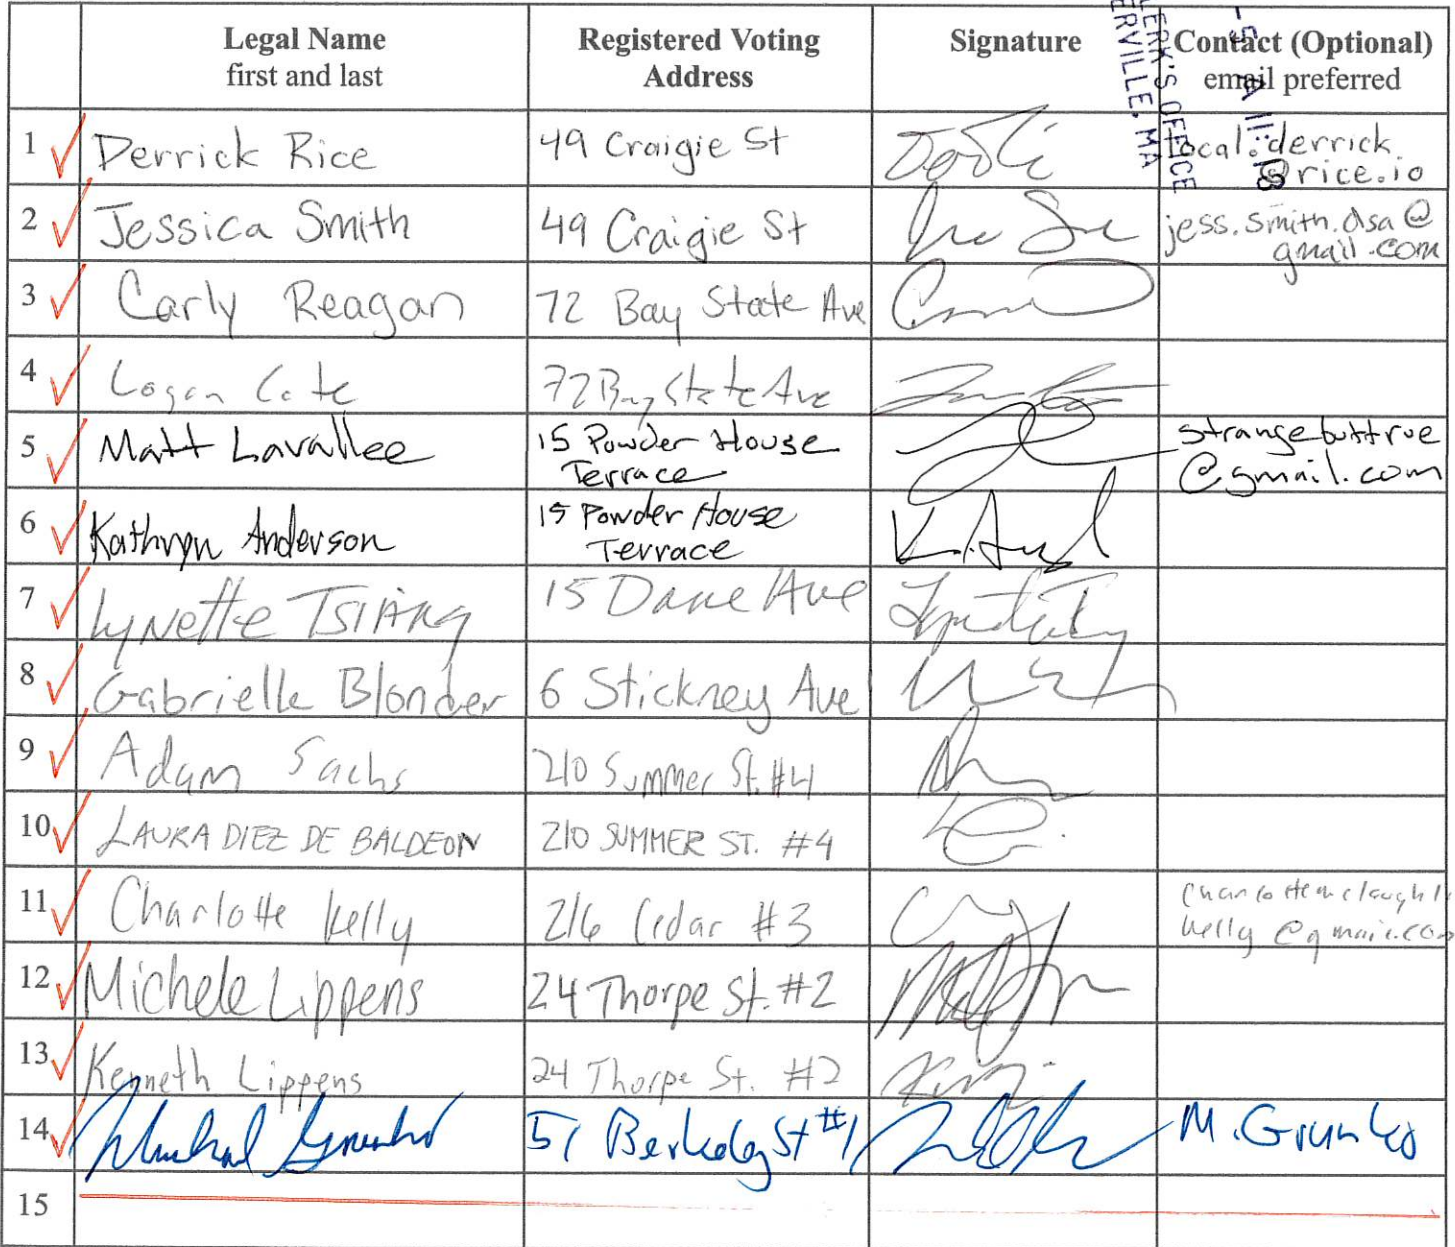 Legal Name
first and last
Registered Voting
Address
Signature
Contact (Optional)
email preferred
CLERK'S OFFICE
ERVILLE, MA
1 Derrick Rice
49 Craigie St
local.derrick
@rice.io
2 Jessica Smith
49 Craigie St
jess.smith.dsa@
gmail.com
3 Carly Reagan
72 Bay State Ave
4 Logan Cote
72 Bay State Ave
5 Matt Lavallee
15 Powder House
Terrace
strangebuttrue
@gmail.com
6 Kathryn Anderson
15 Powder House
Terrace
7 Lynette Tsiang
15 Dane Ave
8 Gabrielle Blonder
6 Stickney Ave
9 Adam Sachs
210 Summer St. #4
10 LAURA DIEZ DE BALDEON
210 SUMMER ST. #4
11 Charlotte Kelly
216 Cedar #3
kelly@gmail.com
12 Michele Lippens
24 Thorpe St. #2
13 Kenneth Lippens
24 Thorpe St. #2
14
51 Berkeley St #1
M. Grunko
15